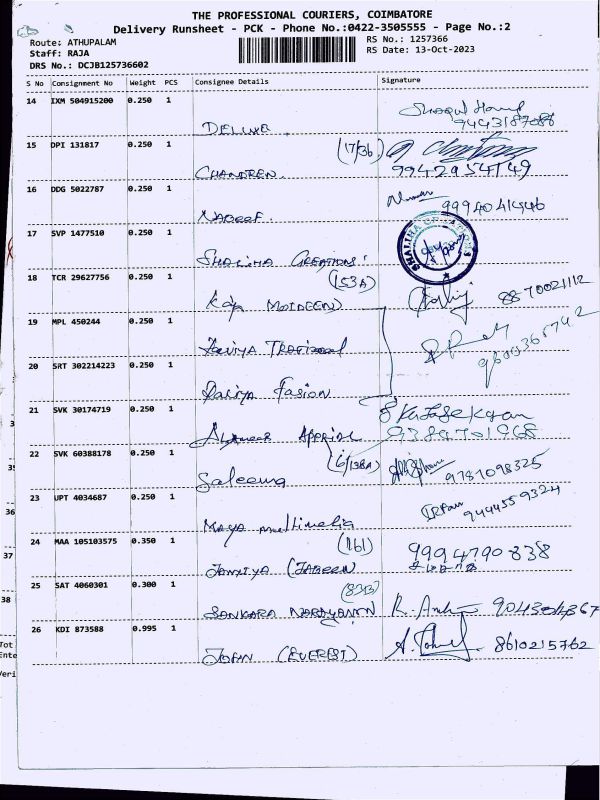 THE PROFESSIONAL COURIERS, COIMBATORE
Delivery Runsheet - PCK - Phone No.:0422-3505555 - Page No.:2
Route: ATHUPALAM
Staff: RAJA
DRS No.: DCJB125736602
RS No.: 1257366
RS Date: 13-Oct-2023
S No Consignment No Weight PCS Consignee Details Signature
14 IXM 504915200 0.250 1
9443187088
15 DPI 131817 0.250 1 (17/36)
CHANDREN. 9942954149
16 DDG 5022787 0.250 1
NABEEF. 9994041546
17 SVP 1477510 0.250 1
SHALIHA CREATIONS
18 TCR 29627756 0.250 1 (153A)
KAJA MOIDEEN) 8870021112
19 MPL 450244 0.250 1
20 SRT 302214223 0.250 1
Fasion
21 SVK 30174719 0.250 1
9389701968
22 SVK 60388178 0.250 1 (6/138A)
Saleema 9787098325
23 UPT 4034687 0.250 1
MAYA multimedia 9444559324
24 MAA 105103575 0.350 1 (161)
(JABEEN 9994790838
25 SAT 4060301 0.300 1 (83B)
SANKARA NARAYANAN 9043044367
26 KDI 873588 0.995 1
JOHN (EVEREST) 8610215762
36
37
38
Tot
Ente
Veri